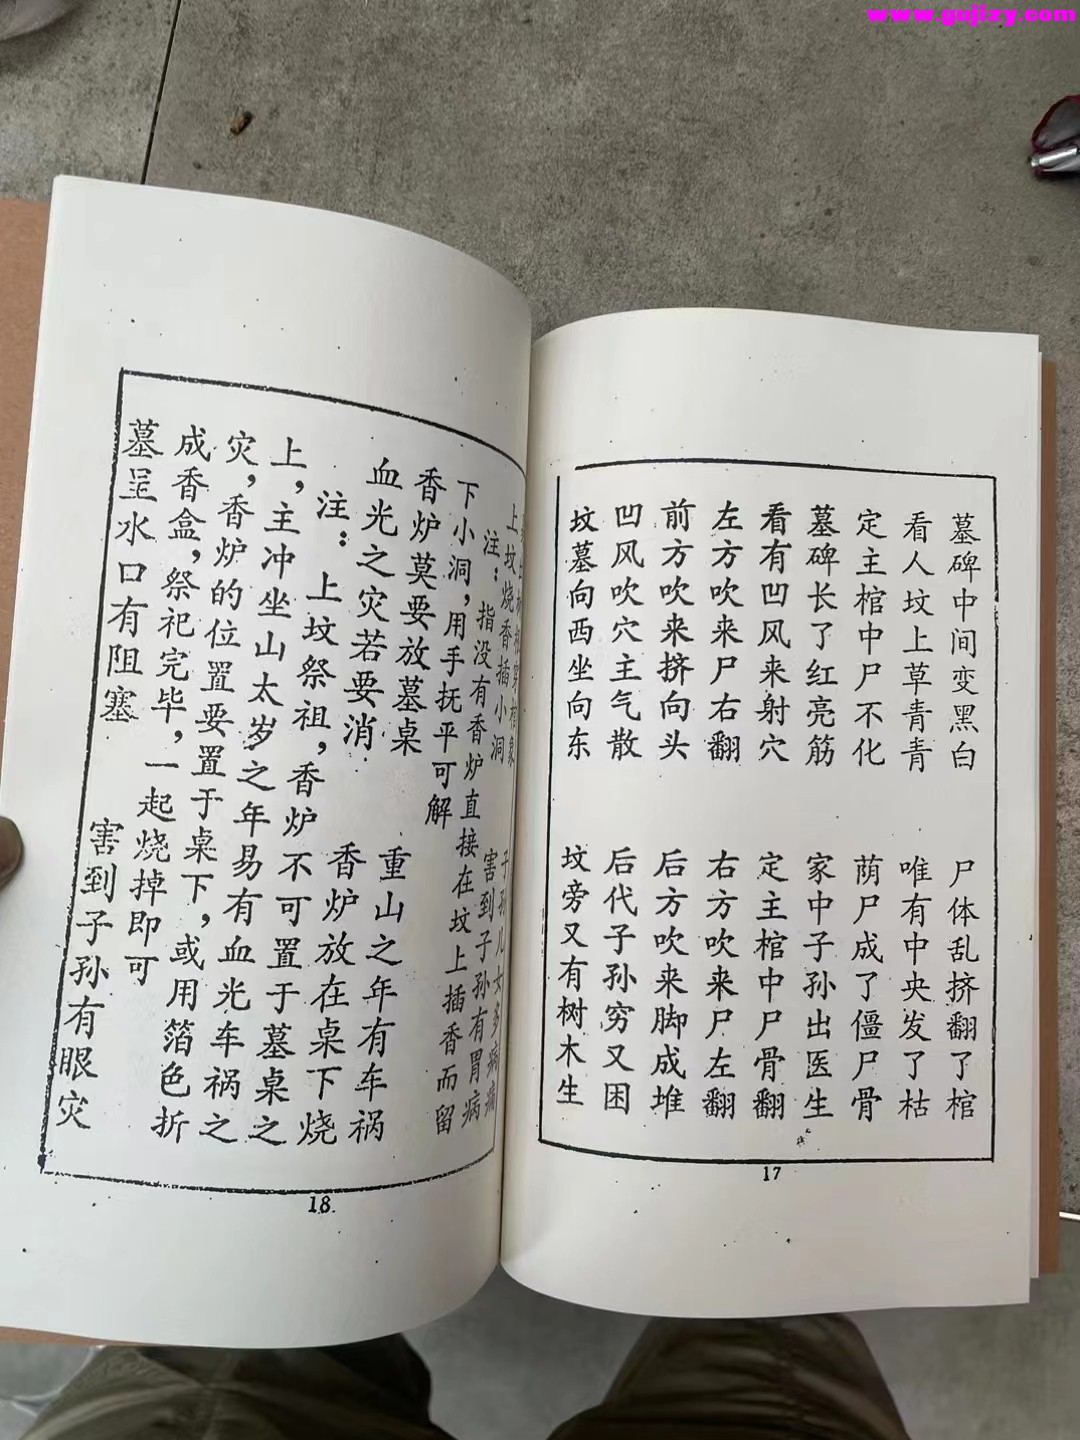 www.gujizy.com
墓碑中间变黑白 尸体乱挤翻了棺
看人坟上草青青 唯有中央发了枯
定主棺中尸不化 荫尸成了僵尸骨
墓碑长了红亮筋 家中子孙出医生
看有凹风来射穴 定主棺中尸骨翻
左方吹来尸右翻 右方吹来尸左翻
前方吹来挤向头 后方吹来脚成堆
凹风吹穴主气散 后代子孙穷又困
坟墓向西坐向东 坟旁又有树木生
17
根穿棺象 子孙儿女多病痛
上坟烧香插小洞 害到子孙有胃病
注：指没有香炉直接在坟上插香而留
下小洞，用手抚平可解
香炉莫要放墓桌 重山之年有车祸
血光之灾若要消 香炉放在桌下烧
注：上坟祭祖，香炉不可置于墓桌之
上，主冲坐山太岁之年易有血光车祸之
灾，香炉的位置要置于桌下，或用箔色折
成香盒，祭祀完毕，一起烧掉即可
墓呈水口有阻塞 害到子孙有眼灾
18